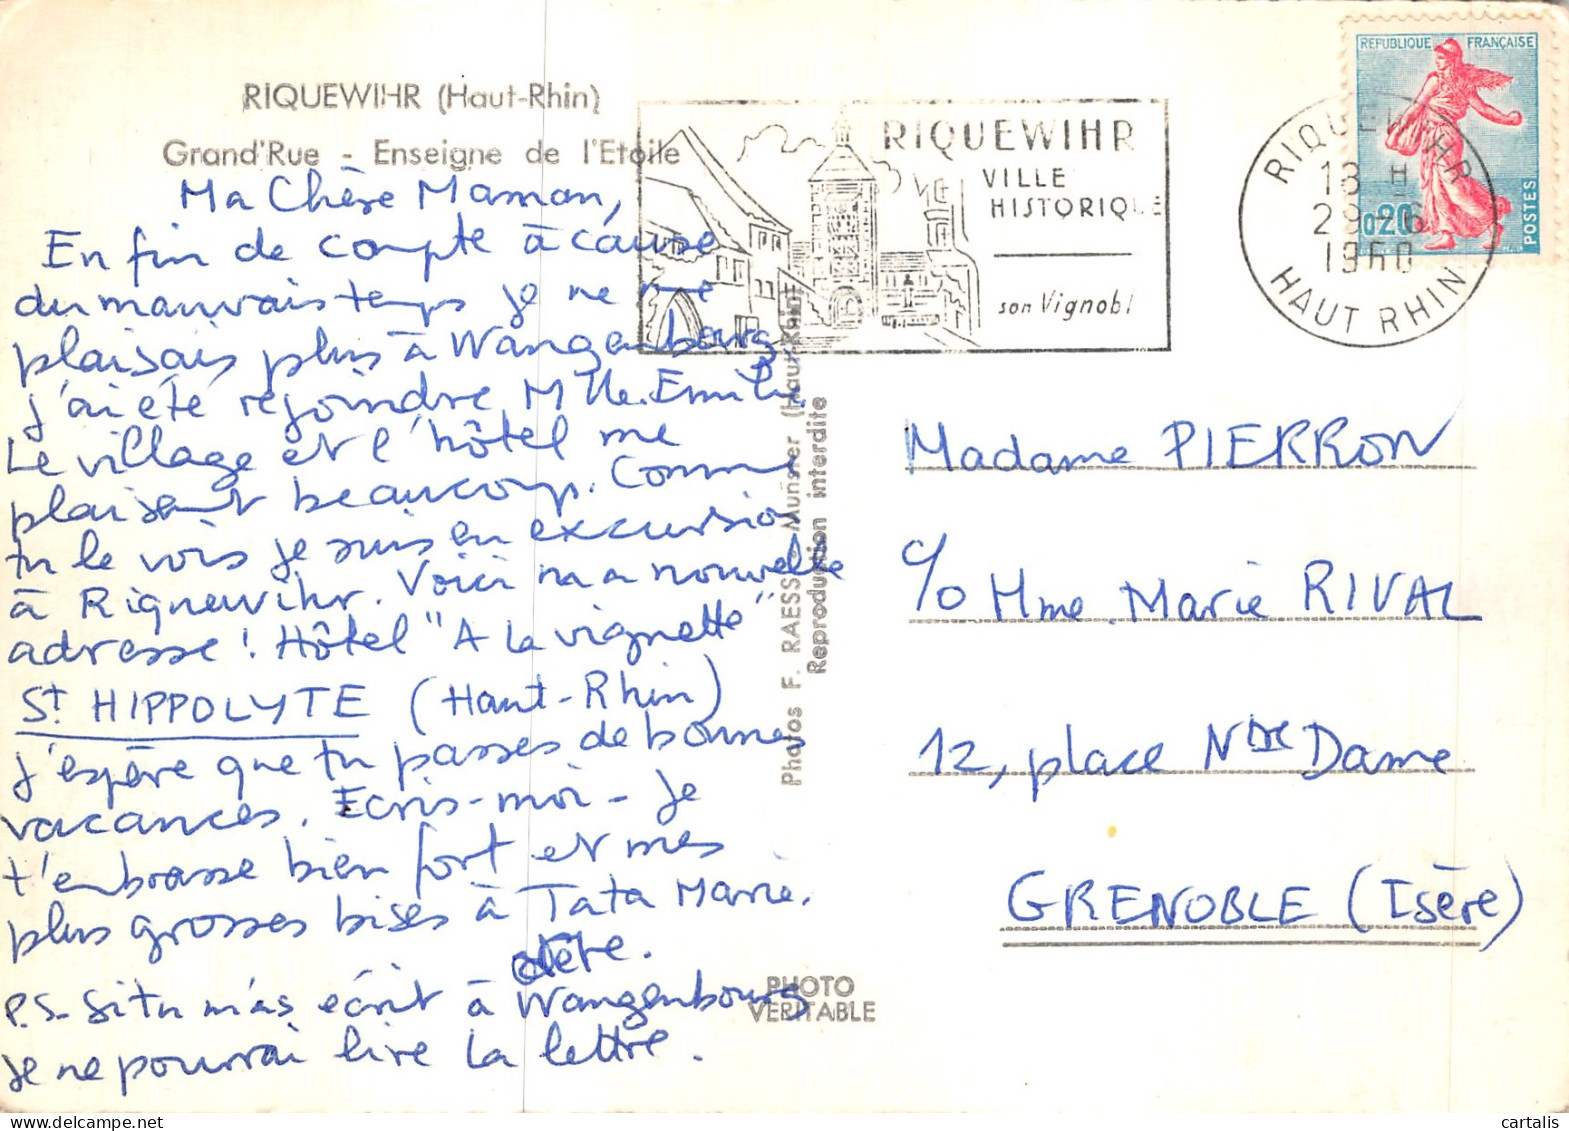 RIQUEWIHR (Haut-Rhin)
Grand'Rue - Enseigne de l'Etoile
Ma Chère Maman,
En fin de compte à cause
du mauvais temps je ne me
plaisais plus à Wangenbourg
j'ai été rejoindre Mlle. Emilie.
Le village et l'hôtel me
plaisent beaucoup. Comme
tu le vois je suis en excursion
à Riquewihr. Voici ma nouvelle
adresse ! Hôtel "A la vignette"
St HIPPOLYTE (Haut-Rhin)
j'espère que tu passes de bonnes
vacances. Ecris-moi - Je
t'embrasse bien fort et mes
plus grosses bises à Tata Marie.
P.S. Si tu m'as écrit à Wangenbourg
je ne pourrai lire la lettre.
Photos F. RAESS - Munster (Haut-Rhin)
Reproduction interdite
PHOTO
VERITABLE
RIQUEWIHR
VILLE
HISTORIQUE
son Vignobl
RIQUEWIHR
18 H
29 - 6
1960
HAUT RHIN
REPUBLIQUE FRANÇAISE
0,20
POSTES
Madame PIERRON
c/o Mme. Marie RIVAL
12, place NDe Dame
GRENOBLE (Isère)
cartalis